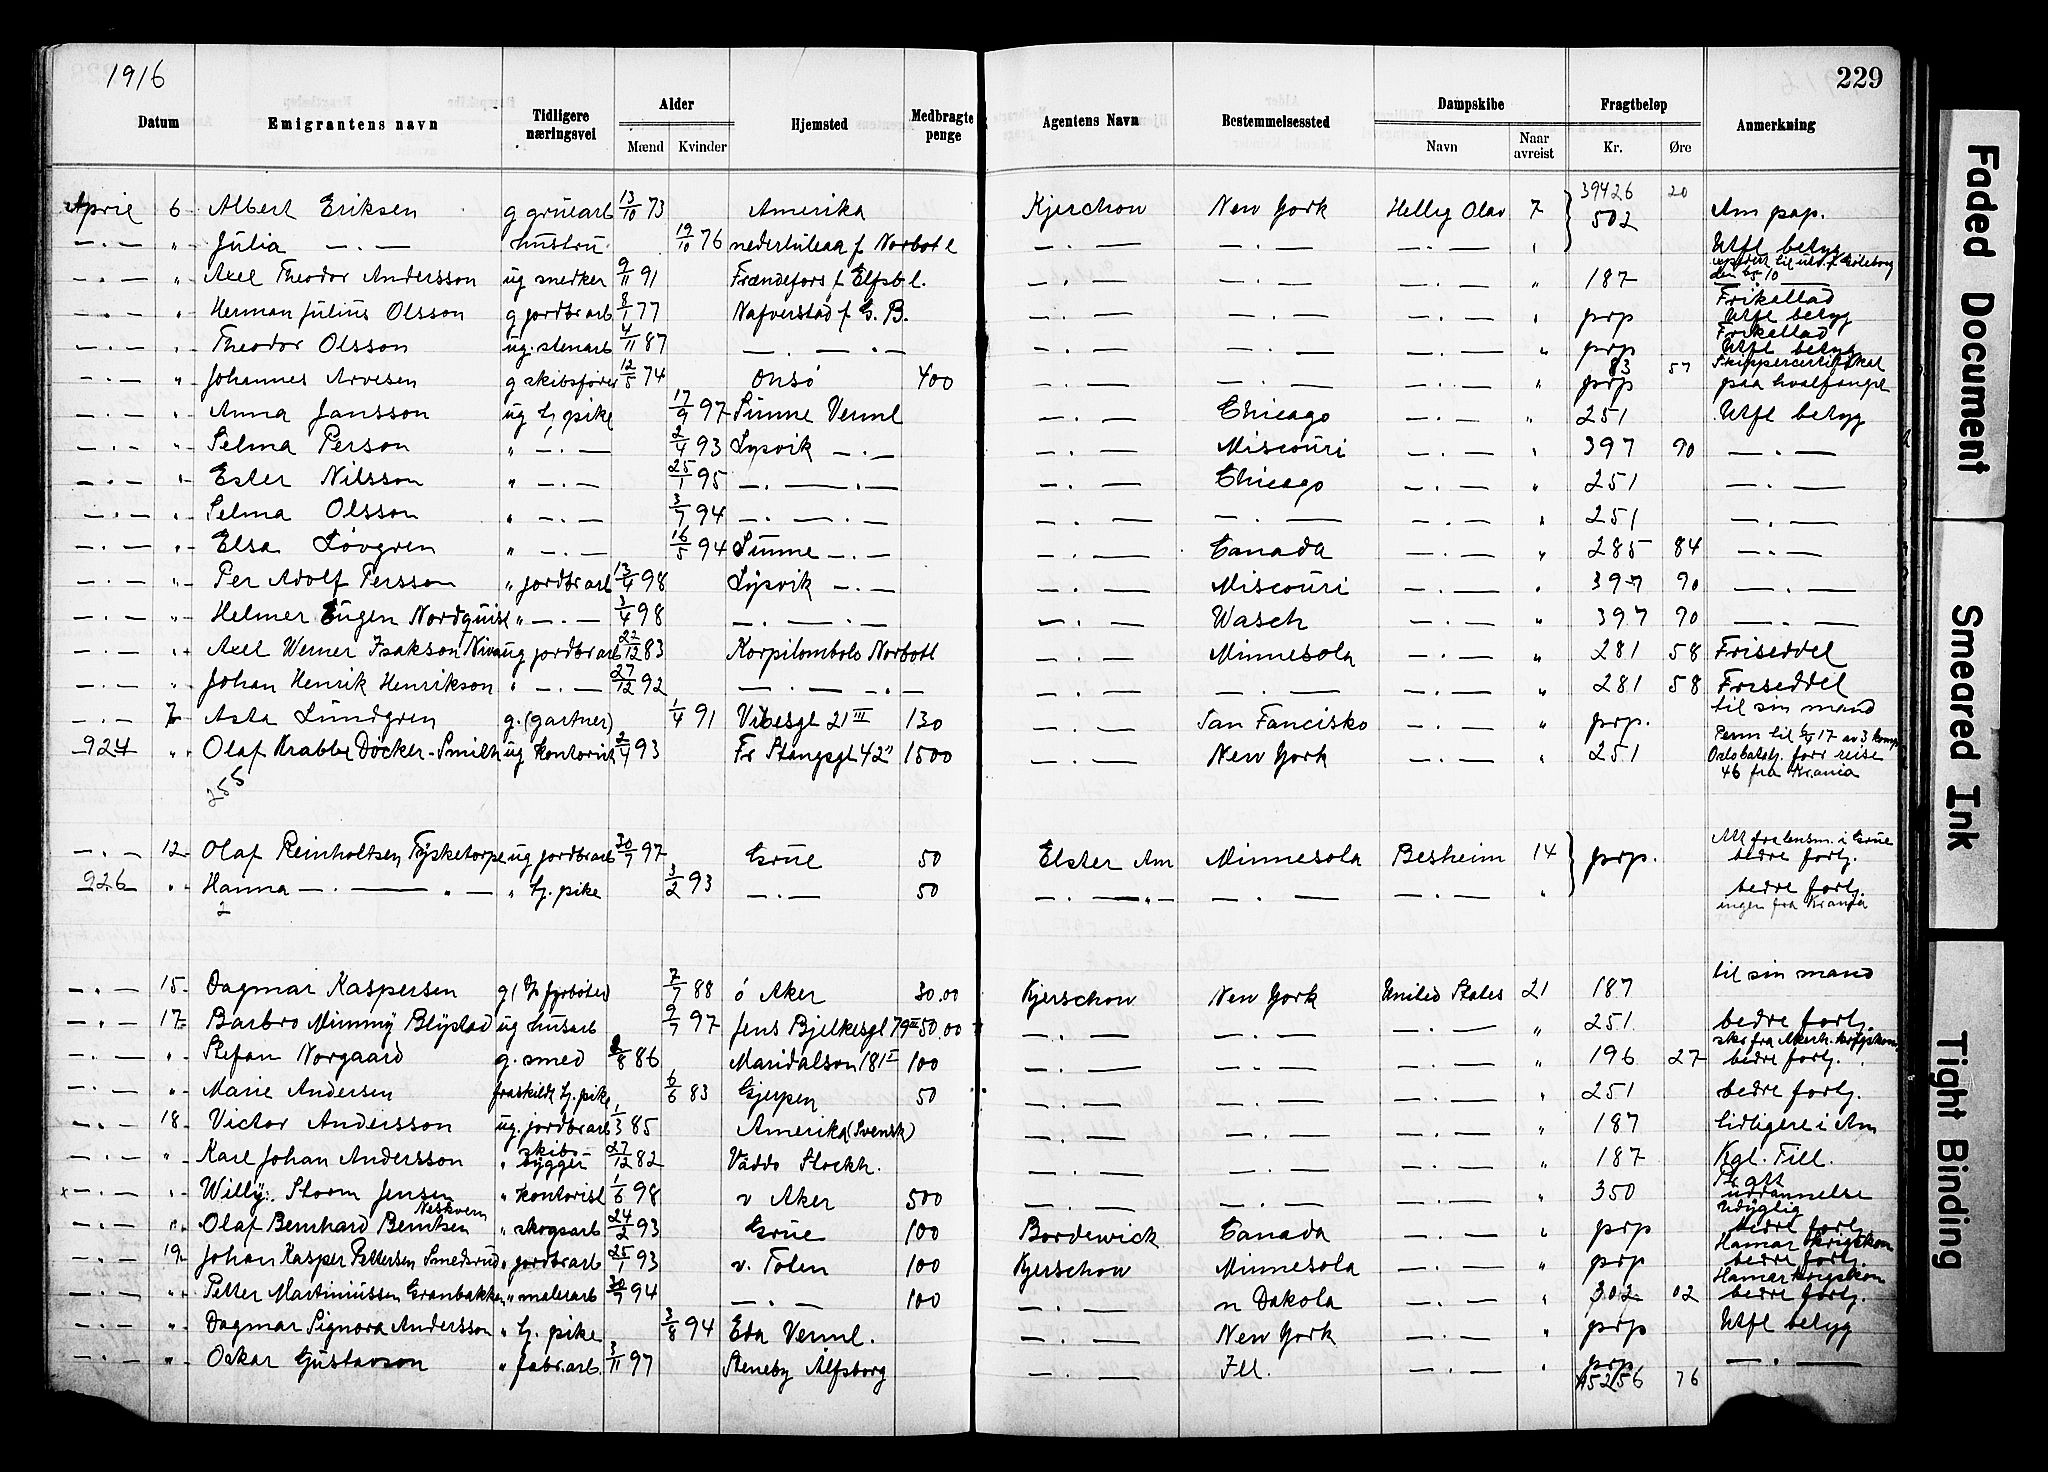 1916
229
Datum Emigrantens navn Tidligere næringsvei Alder Mænd Kvinder Hjemsted Medbragte penge Agentens Navn Bestemmelsessted Dampskibe Navn Naar avreist Fragtbeløp Kr. Øre Anmerkning
39426 20
April 6 Albert Eriksen g gruearb 13/10 73 Amerika Kjerschow New York Hellig Olav 7 502 Am pap.
—.— " Julia —.— hustru 19/10 76 nederluleaa f Norbot l —.— —.— —.— " Utfl betyg
—.— " Axel Theodor Andersson ug snedker 9/11 91 Frændefors f Elfsb l. —.— —.— —.— " 187
—.— " Herman Julius Olsson g jordbrarb 8/1 77 Nafverstad f G. B. —.— —.— —.— " prp Frikallad Utfl betyg
—.— " Theodor Olsson ug. stenarb 4/11 87 —.—.— —.— —.— —.— " prp Frikallad Utfl betyg
—.— " Johannes Arvesen g skibsfører 12/5 74 Onsø 400 —.— —.— —.— " prp 83 57 Skippercertifikat paa hvalfangst
—.— " Anna Jansson ug tj pike 17/9 97 Sunne Verml —.— Chicago —.— " 251 Utfl betyg
—.— " Selma Person " —.— 2/4 93 Lysvik —.— —.— Miscouri —.— " 397 90 —.—
—.— " Ester Nilsson " —.— 25/1 95 —.—.— —.— Chicago —.— " 251 —.—
—.— " Selma Olsson " —.— 3/7 94 —.—.— —.— —.— —.— " 251 —.—
—.— " Elsa Løvgren " —.— 16/5 94 Sunne —.— —.— Canada —.— " 285 84 —.—
—.— " Per Adolf Persson " jordbrarb 13/4 98 Lysvik —.— —.— Miscouri —.— " 397 90 —.—
—.— " Helmer Eugen Nordquist " —.— 3/4 98 —.—.— —.— Wasch —.— " 397 90 —.—
—.— " Axel Werner Isakson Niva ug jordbrarb 22/12 83 Korpilombolo Norbott —.— Minnesota —.— " 281 58 Friseddel
—.— " Johan Henrik Henrikson " —.— 27/12 92 —.—.— —.— —.— —.— " 281 58 Friseddel
—.— 7 Asta Lundgren g. (gartner) 1/4 91 Vibesgt 21 III 130 —.— San Fancisko —.— " prp. til sin mand
924 " Olaf Krabbe Døcker-Smith ug kontorist 2/4 93 Fr Stangsgt 42" 1500 —.— New York —.— " 251 Perm til 6/4 17 av 3 komp Oslo batalj. forr reise 46 fra Krania
255
—.— 12 Olaf Reinholtsen Tysketorpe ug jordbrarb 30/7 97 Grue 50 Elster Am Minnesota Besheim 14 prp. Att fra lensm. i Grue bedre fortj.
926 " Hanna —.—.— " tj. pike 3/2 93 —.— 50 —.— —.— —.— " bedre fortj. ingen fra Krania
2
—.— 15 Dagmar Kaspersen g( fyrbøter 7/7 88 ø Aker 30.00 Kjerschow New York United States 21 187 til sin mand
—.— 17 Barbro Mimmy Blystad ug husarb 9/7 97 Jens Bjelkesgt 79 II 50.00 —.— —.— —.— " 251 bedre fortj.
—.— " Stefan Norgaard g. smed 8/8 86 Maridalson 181 I 100 —.— —.— —.— " 196 27 skr fra Akersh. krigskom. bedre fortj.
—.— " Marie Andersen fraskildt tj. pike 6/6 83 Gjerpen 50 —.— —.— —.— " 251 bedre fortj.
—.— 18 Victor Andersson ug. jordbrarb 1/3 85 Amerika (Svensk) —.— —.— —.— " 187 tidligere i Am
—.— " Karl Johan Andersson " skibsbygger 27/12 82 Väddo Stockh. —.— —.— —.— " 187 Kgl. Till.
x —.— " Willy Storm Jensen " kontorist 1/6 98 v Aker 500 —.— —.— —.— " 350 utdannelse
—.— " Olaf Bernhard Berntsen Neskvern " skogsarb 24/2 93 Grue 100 Bordewick Canada —.— " prp Udygtig bedre fortj.
—.— 19 Johan Kasper Pettersen Smedsrud " jordbrarb 25/1 93 v. Toten 100 Kjerschow Minnesota —.— " prp Hamar krigskom bedre fortj.
—.— " Petter Martiniussen Granbakken " malerarb 30/7 94 —.— 100 —.— n Dakota —.— " 302 02 Hamar krigskom bedre fortj.
—.— " Dagmar Signora Andersson " tj. pike 3/8 94 Eda Verml. —.— New York —.— " prp Utfl betyg
—.— " Oskar Gustavson " fabr.arb. 3/11 97 Steneby Alfsborg —.— Ill. —.— " prp —.—
45256 76
Faded Document
Smeared Ink
Tight Binding